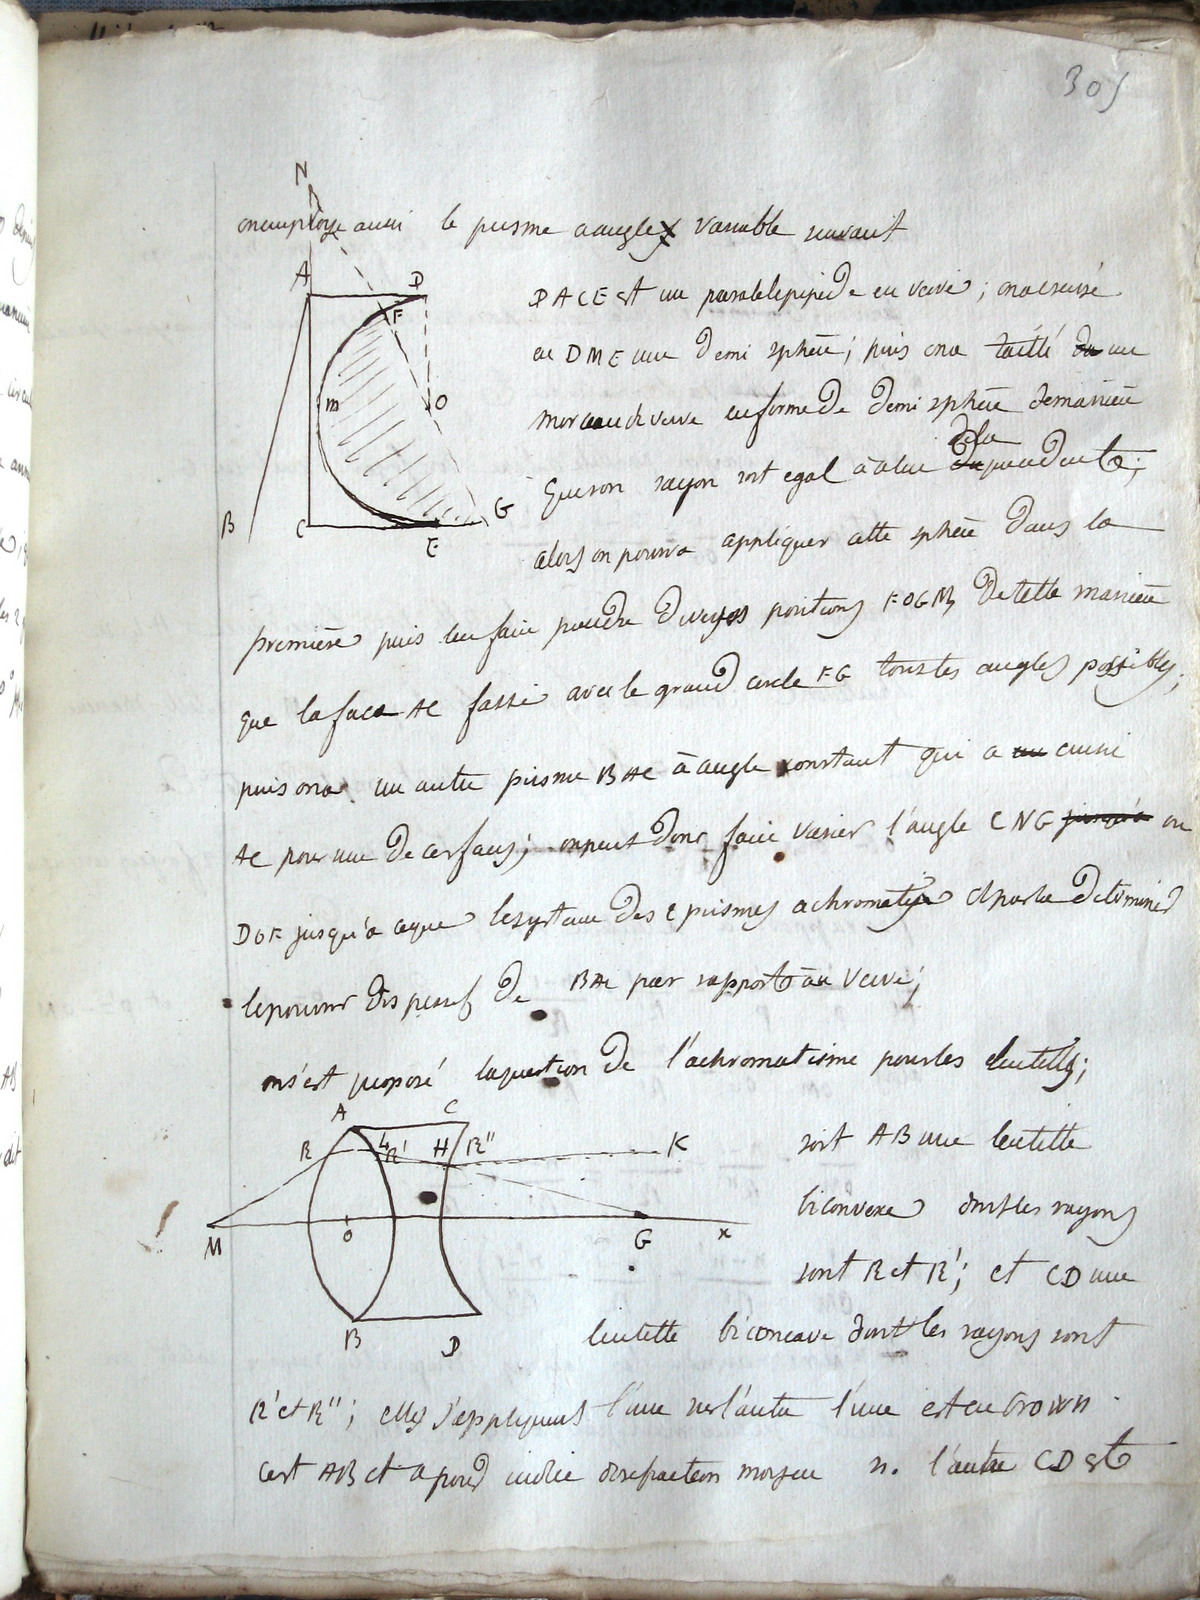 305
N
on employe aussi le prisme a angle variable suivant
A D
F
DACE est un parallelepipede en verre; on a creusé
en DME une demi sphère; puis on a taillé du un
m O
morceau de verre en forme de demi sphère de manière
de la
que son rayon soit egal à celui du precedente;
B C E G
alors on pourra appliquer cette sphère dans la
première puis leu faire prendre diverses positions FOGM, de telle manière
que la face AC fasse avec le grand cercle FG tous les angles possibles;
puis on a un autre prisme BAC à angle constant qui a un aussi
AC pour une de ces faces; on peut donc faire varier l'angle CNG jusqu'à ou
DOF jusqu'à ceque le systeme des 2 prismes achromatise et par la determiner
le pouvoir dispersif de BAC par rapport au verre;
on s'est proposé la question de l'achromatisme pour les lentilles;
A C
R L R' H R'' K
soit AB une lentille
biconvexe dont les rayons
M O G x
sont R et R'; et CD une
B D
lentille biconcave dont les rayons sont
R' et R''; elles s'appliquent l'une sur l'autre l'une est en crown
c'est AB et a pour indice de refraction moyen n. l'autre CD est